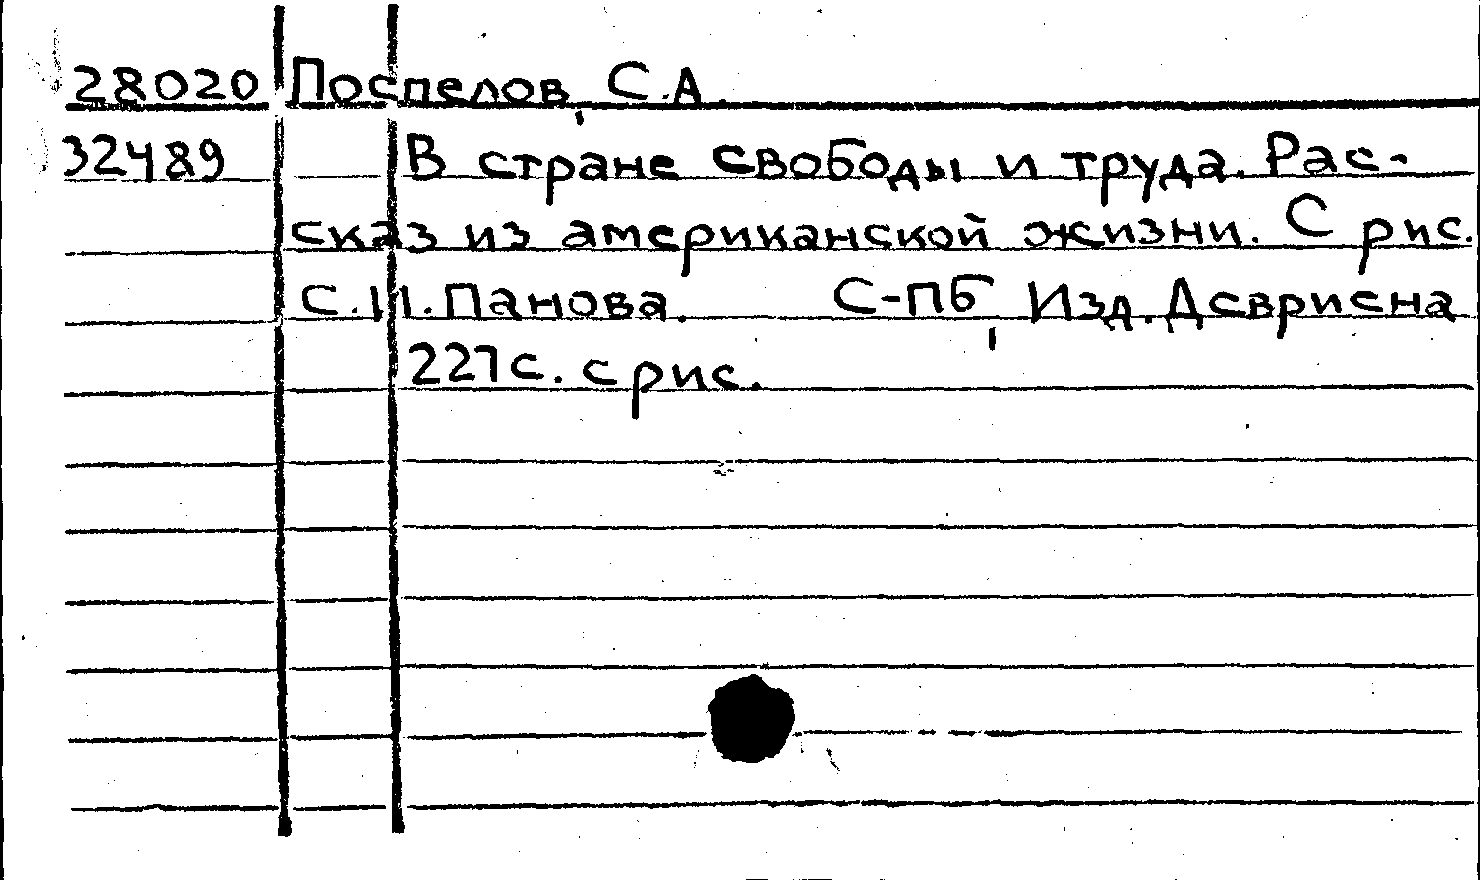 28020 Поспелов, С.А.
32489 В стране свободы и труда. Рас-
сказ из американской жизни. С рис.
С.И.Панова. С-Пб, Изд. Девриена
227с. с рис.